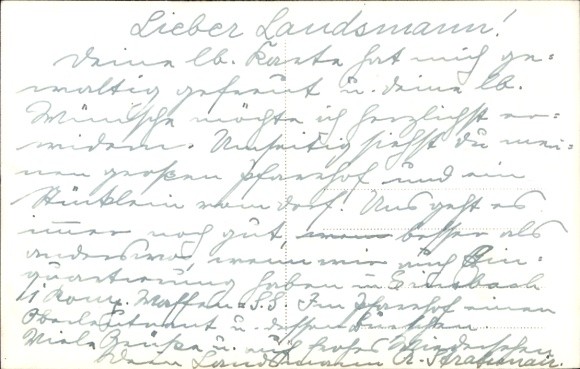 Lieber Landsmann!
Deine lb. Karte hat mich ge=
waltig gefreut u. deine lb.
Wünsche möchte ich herzlichst er=
widern. Umseitig siehst Du mei=
nen großen Pfarrhof und ein
Stücklein vom Dorf! Uns geht es
immer noch gut, besser als
anderswo, wenn wir auch Ein=
quartierung haben in
11 Komp. Waffen=S.S. Im Pfarrhof einen
Oberleutnant u. dessen Burschen.
Viele Grüße u. auf frohes Wiedersehen
Dein Landsmann